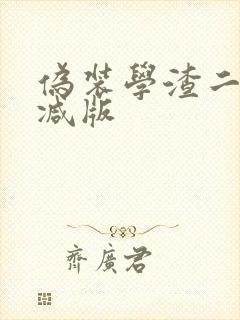 偽装學渣二
减版
齊廣君